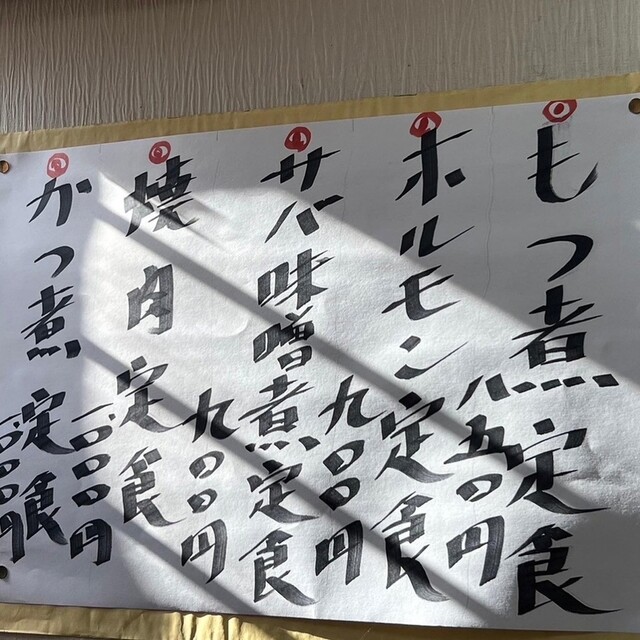 もつ煮定食
八五〇円
ホルモン定食
九〇〇円
サバ味噌煮定食
九〇〇円
焼肉定食
一〇〇〇円
かつ煮定食
一〇〇〇円